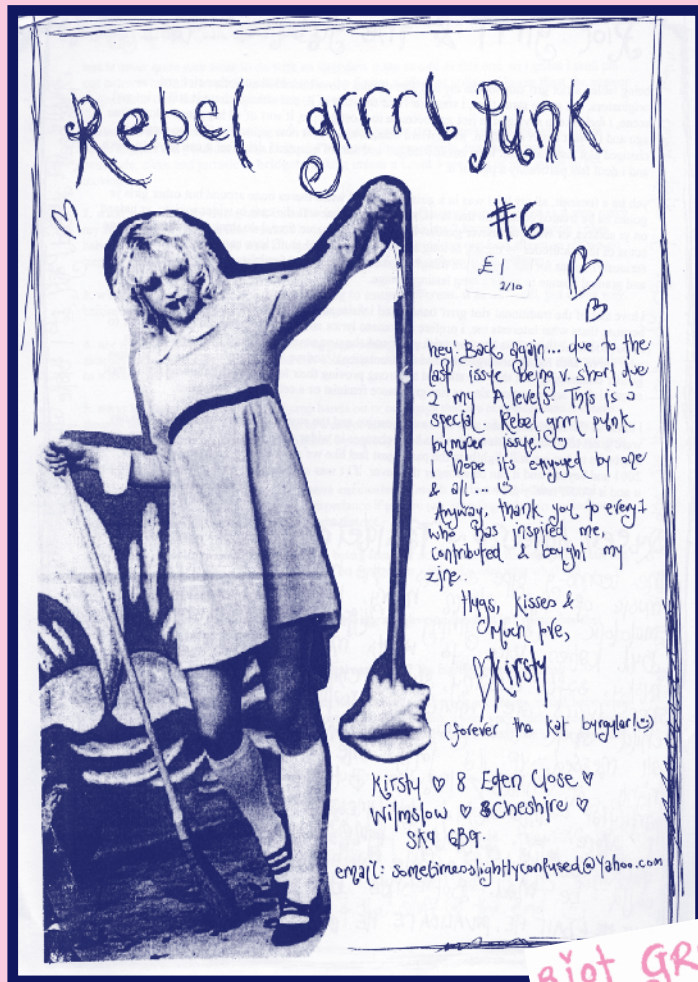 Rebel grrrl Punk
#6
£1
2/10
hey! Back again... due to the
last issue being v. short due
2 my A levels. This is a
special Rebel grrrl punk
bumper issue!
I hope it's enjoyed by one
& all...
Anyway, thank you to every1
who has inspired me,
contributed & bought my
zine.
Hugs, kisses &
Much love,
Kirsty
(forever the kat burgular)
Kirsty 8 Eden Close
Wilmslow Cheshire
SK9 6BG.
email: sometimesslightlyconfused@yahoo.com
Riot GR